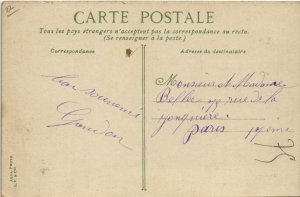 CARTE POSTALE
Tous les pays étrangers n'acceptent pas la correspondance au recto.
(Se renseigner à la poste.)
Correspondance
Adresse du destinataire
Bon souvenir
Monsieur et Madame
rue de la
Jonquière
Paris